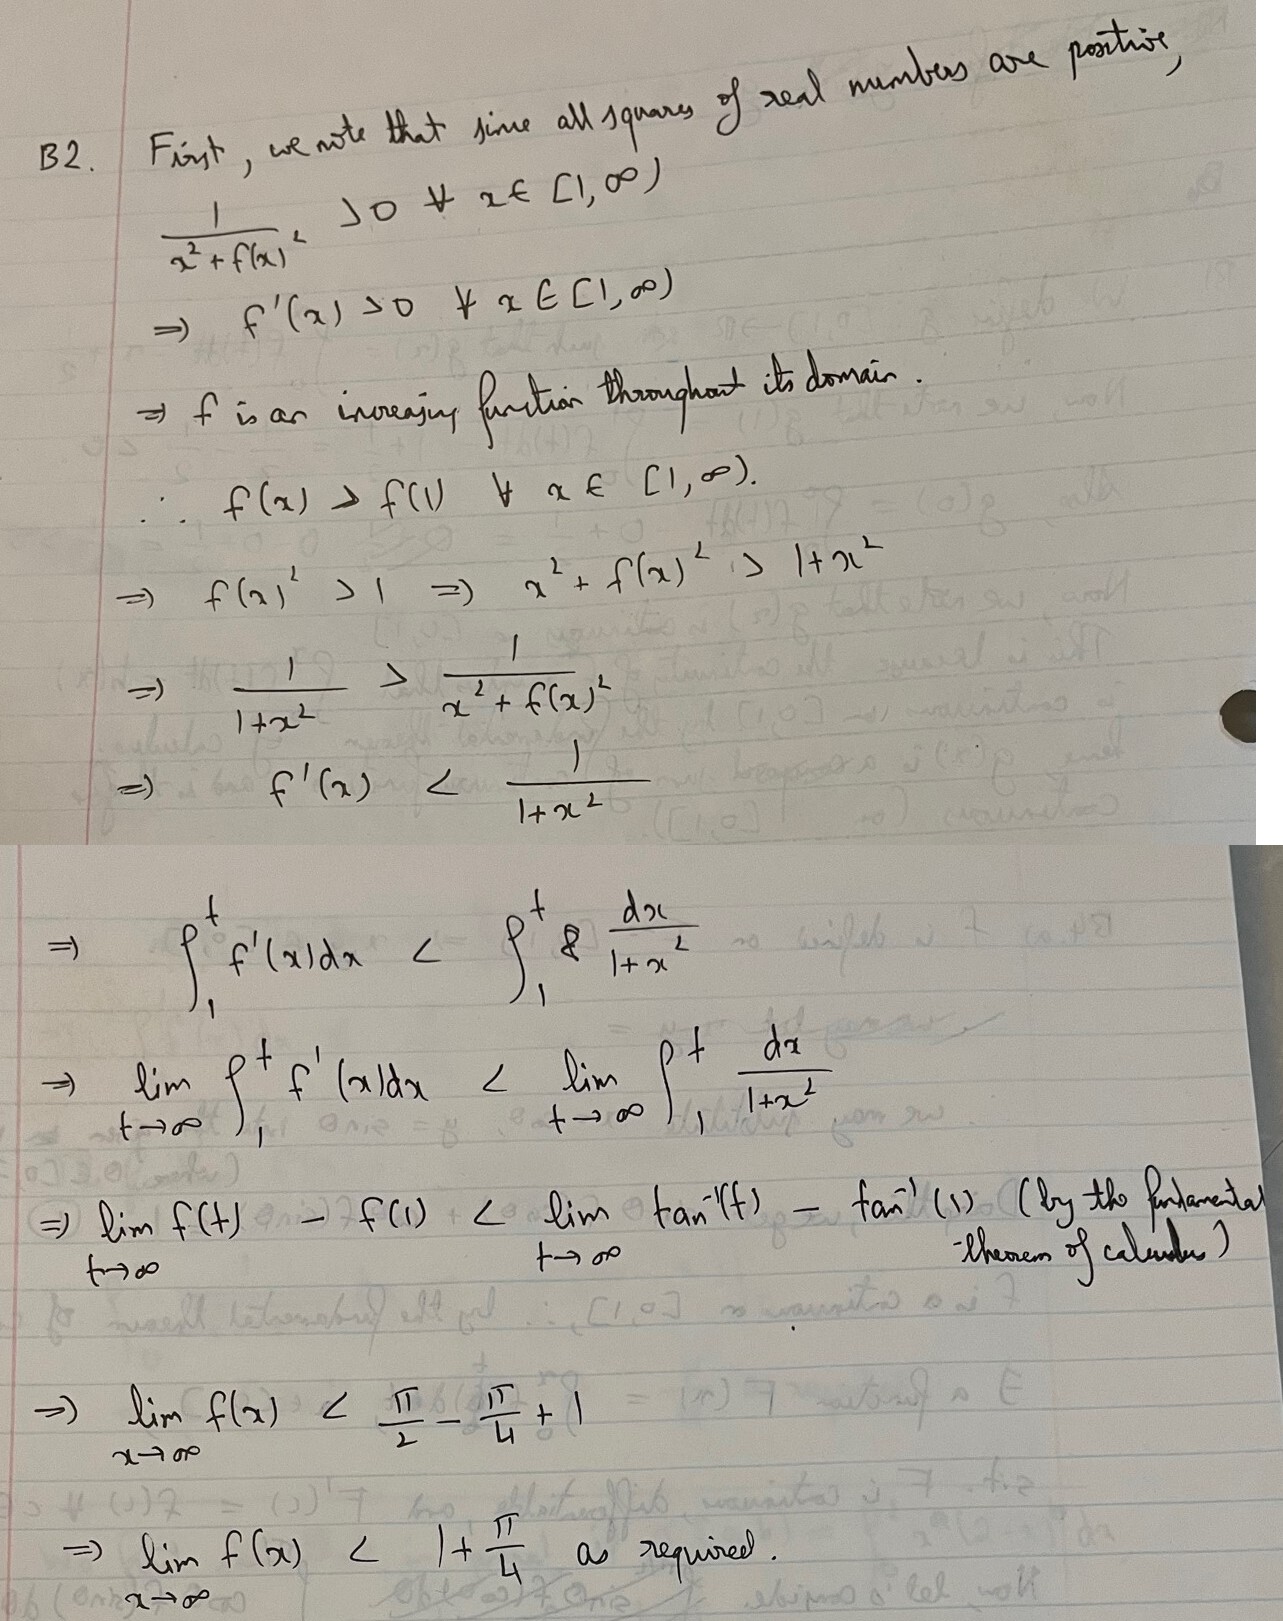 B2. First, we note that since all squares of real numbers are positive,
1/(x² + f(x)²) > 0 ∀ x ∈ [1, ∞)
⇒ f'(x) > 0 ∀ x ∈ [1, ∞)
⇒ f is an increasing function throughout its domain.
∴ f(x) > f(1) ∀ x ∈ [1, ∞).
⇒ f(x)² > 1 ⇒ x² + f(x)² > 1+x²
⇒ 1/(1+x²) > 1/(x² + f(x)²)
⇒ f'(x) < 1/(1+x²)
⇒ ∫₁ᵗ f'(x)dx < ∫₁ᵗ dx/(1+x²)
⇒ lim t→∞ ∫₁ᵗ f'(x)dx < lim t→∞ ∫₁ᵗ dx/(1+x²)
⇒ lim t→∞ f(t) - f(1) < lim t→∞ tan⁻¹(t) - tan⁻¹(1) (by the fundamental theorem of calculus)
⇒ lim x→∞ f(x) < π/2 - π/4 + 1
⇒ lim x→∞ f(x) < 1 + π/4 as required.